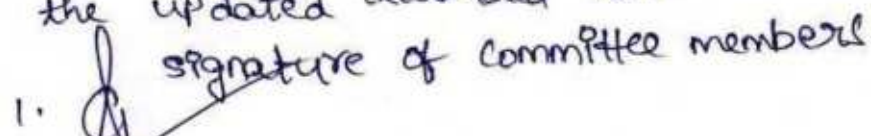 the updated
signature of committee members
1.